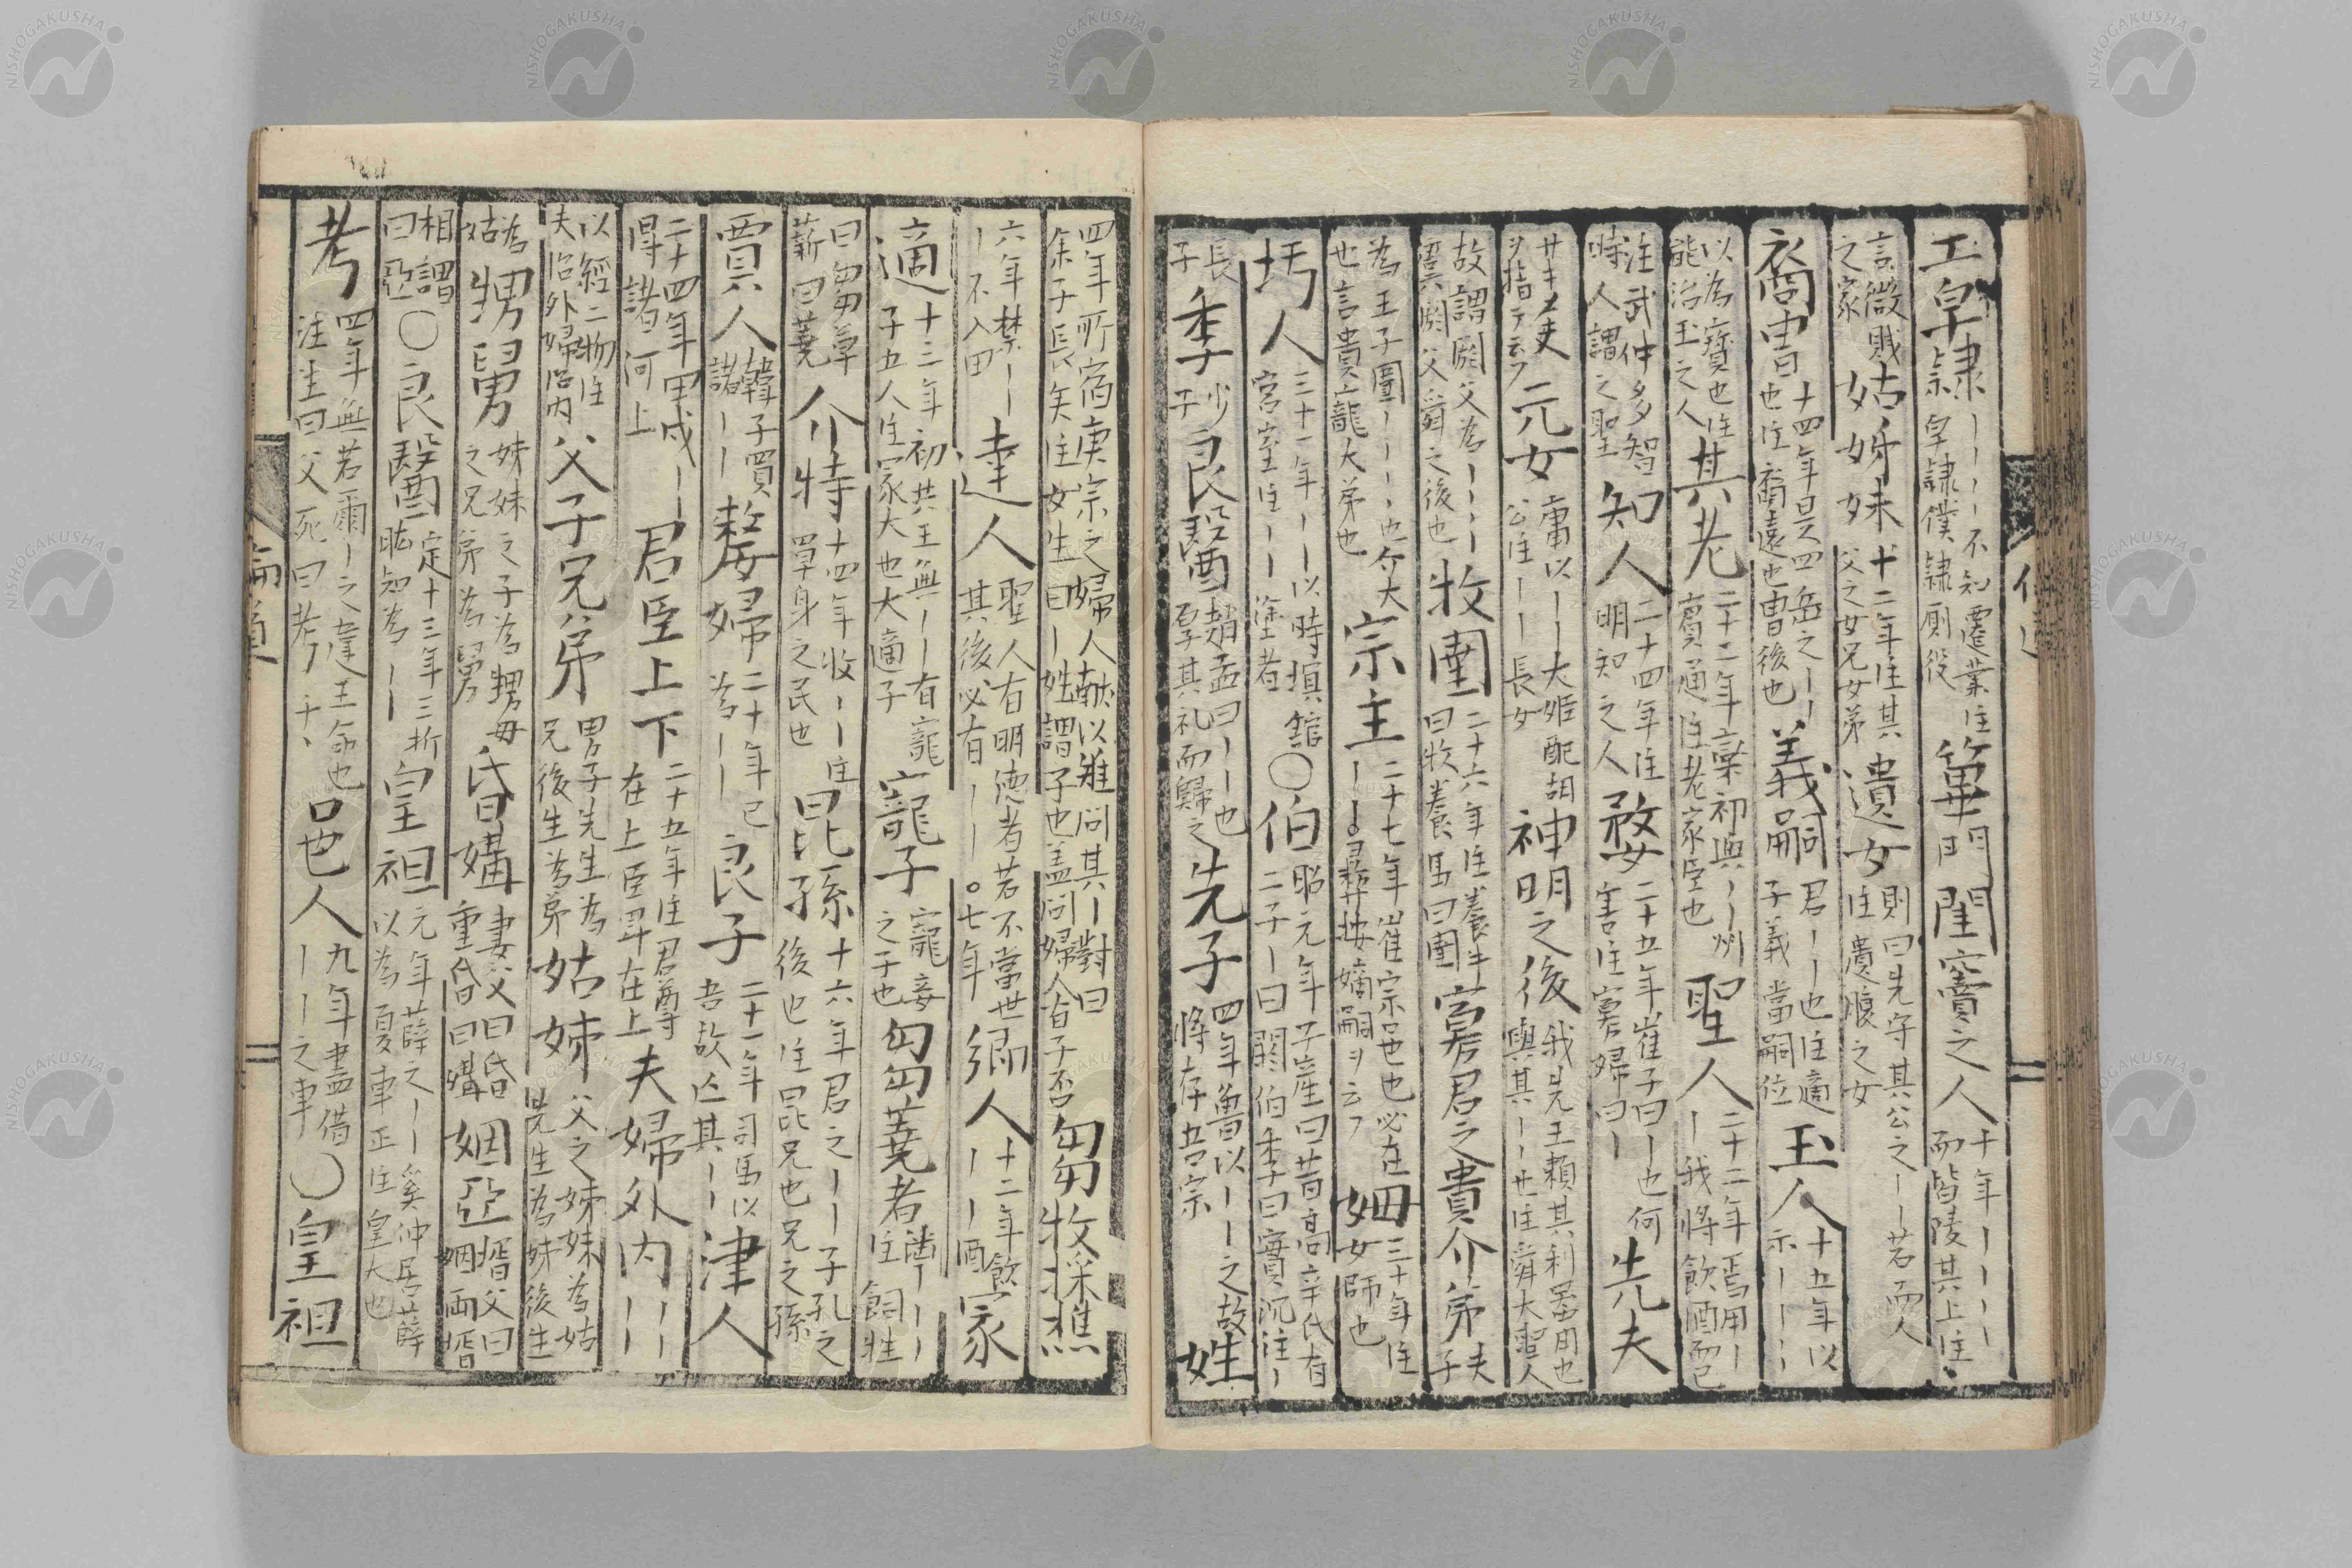 工皁隸丨丨丨丨不知遷業注
皁隸僕隸厠役 篳門閨竇之人十年丨丨丨丨
而皆陵其上注
言微賎
之家 姑姊妹十二年注其
父之女兄女弟 遺女則曰先守其公之丨丨若而人
注遺腹之女
裔冑十四年是四岳之丨丨
也注裔遠也冑後也 義嗣君丨丨也注適
子義當嗣位 玉人十五年以
示丨丨丨
以為寶也注
能治玉之人 其老二十二年棄初與丨丨州
賓通注老家臣也 聖人二十二年焉用丨
丨我將飲酒而已
注武仲多智
時人謂之聖 知人二十四年注
明知之人 嫠二十五年崔子曰丨也何
害注寡婦曰丨 先夫
ヲ指テ云フ 元女庸以丨丨大姬配胡
公注丨丨長女 神明之後我先王賴其利噐用也
與其丨丨也注舜大聖人
故謂閼父為丨丨丨
虞閼父舜之後也 牧圉二十六年注養牛
曰牧養馬曰圉 寡君之貴介弟夫
子
為王子圍丨丨丨丨也介大
也言貴寵大弟也 宗主丨丨二十七年崔宗邑也必在
嫡嗣ヲ云フ 姆三十年注
女師也
圬人三十一年丨丨以時塓館
宮室注丨丨塗者 〇伯昭元年子產曰昔高辛氏有
二子丨曰閼伯季曰實沉注丨
長
子 季少
子 良醫趙孟曰丨丨也
厚其礼而歸之 先子四年魯以丨丨之故
將存吾宗 姓
四年所宿庚宗之婦人獻以雉問其丨對曰
余子長矣注女生曰丨姓謂子也盖问婦人有子否 芻牧採樵
六年禁丨丨
丨不入田 達人聖人有明德者若不當世
其後必有丨丨。七年 鄉人十二年飲
丨丨酒 家
適十三年初共王無丨丨有寵
子五人注冢大也大適子 寵子寵妾
之子也 芻蕘者丨丨丨
注飼牲
曰芻草
薪曰蕘 介特十四年收丨丨注
單身之民也 昆孫十六年君之丨丨子孔之
後也注昆兄也兄之孫
賈人韓子買
諸丨丨 嫠婦二十年已
為丨丨 良子二十一年司馬以
吾故亡其丨丨 津人
二十四年甲戌丨丨
得諸河上 君臣上下二十五年注君尊
在上臣卑在上 夫婦外内丨丨
以經二物注
夫治外婦治内 父子兄弟男子先生為
兄後生為弟 姑姊父之姊妹為姑
先生為姊後生
為
姑 甥舅妹妹之子為甥母
之兄弟為舅 昏媾妻父曰昏
重昏曰媾 姻亞壻父曰
姻兩壻
相謂
曰亞 〇良醫定十三年三折
肱知為丨 皇祖元年薛之丨丨奚仲居薛
以為夏車正注皇大也
考四年無若爾丨之違王命也
注生曰父死曰考 邑人九年盡借
丨丨之車 〇皇祖